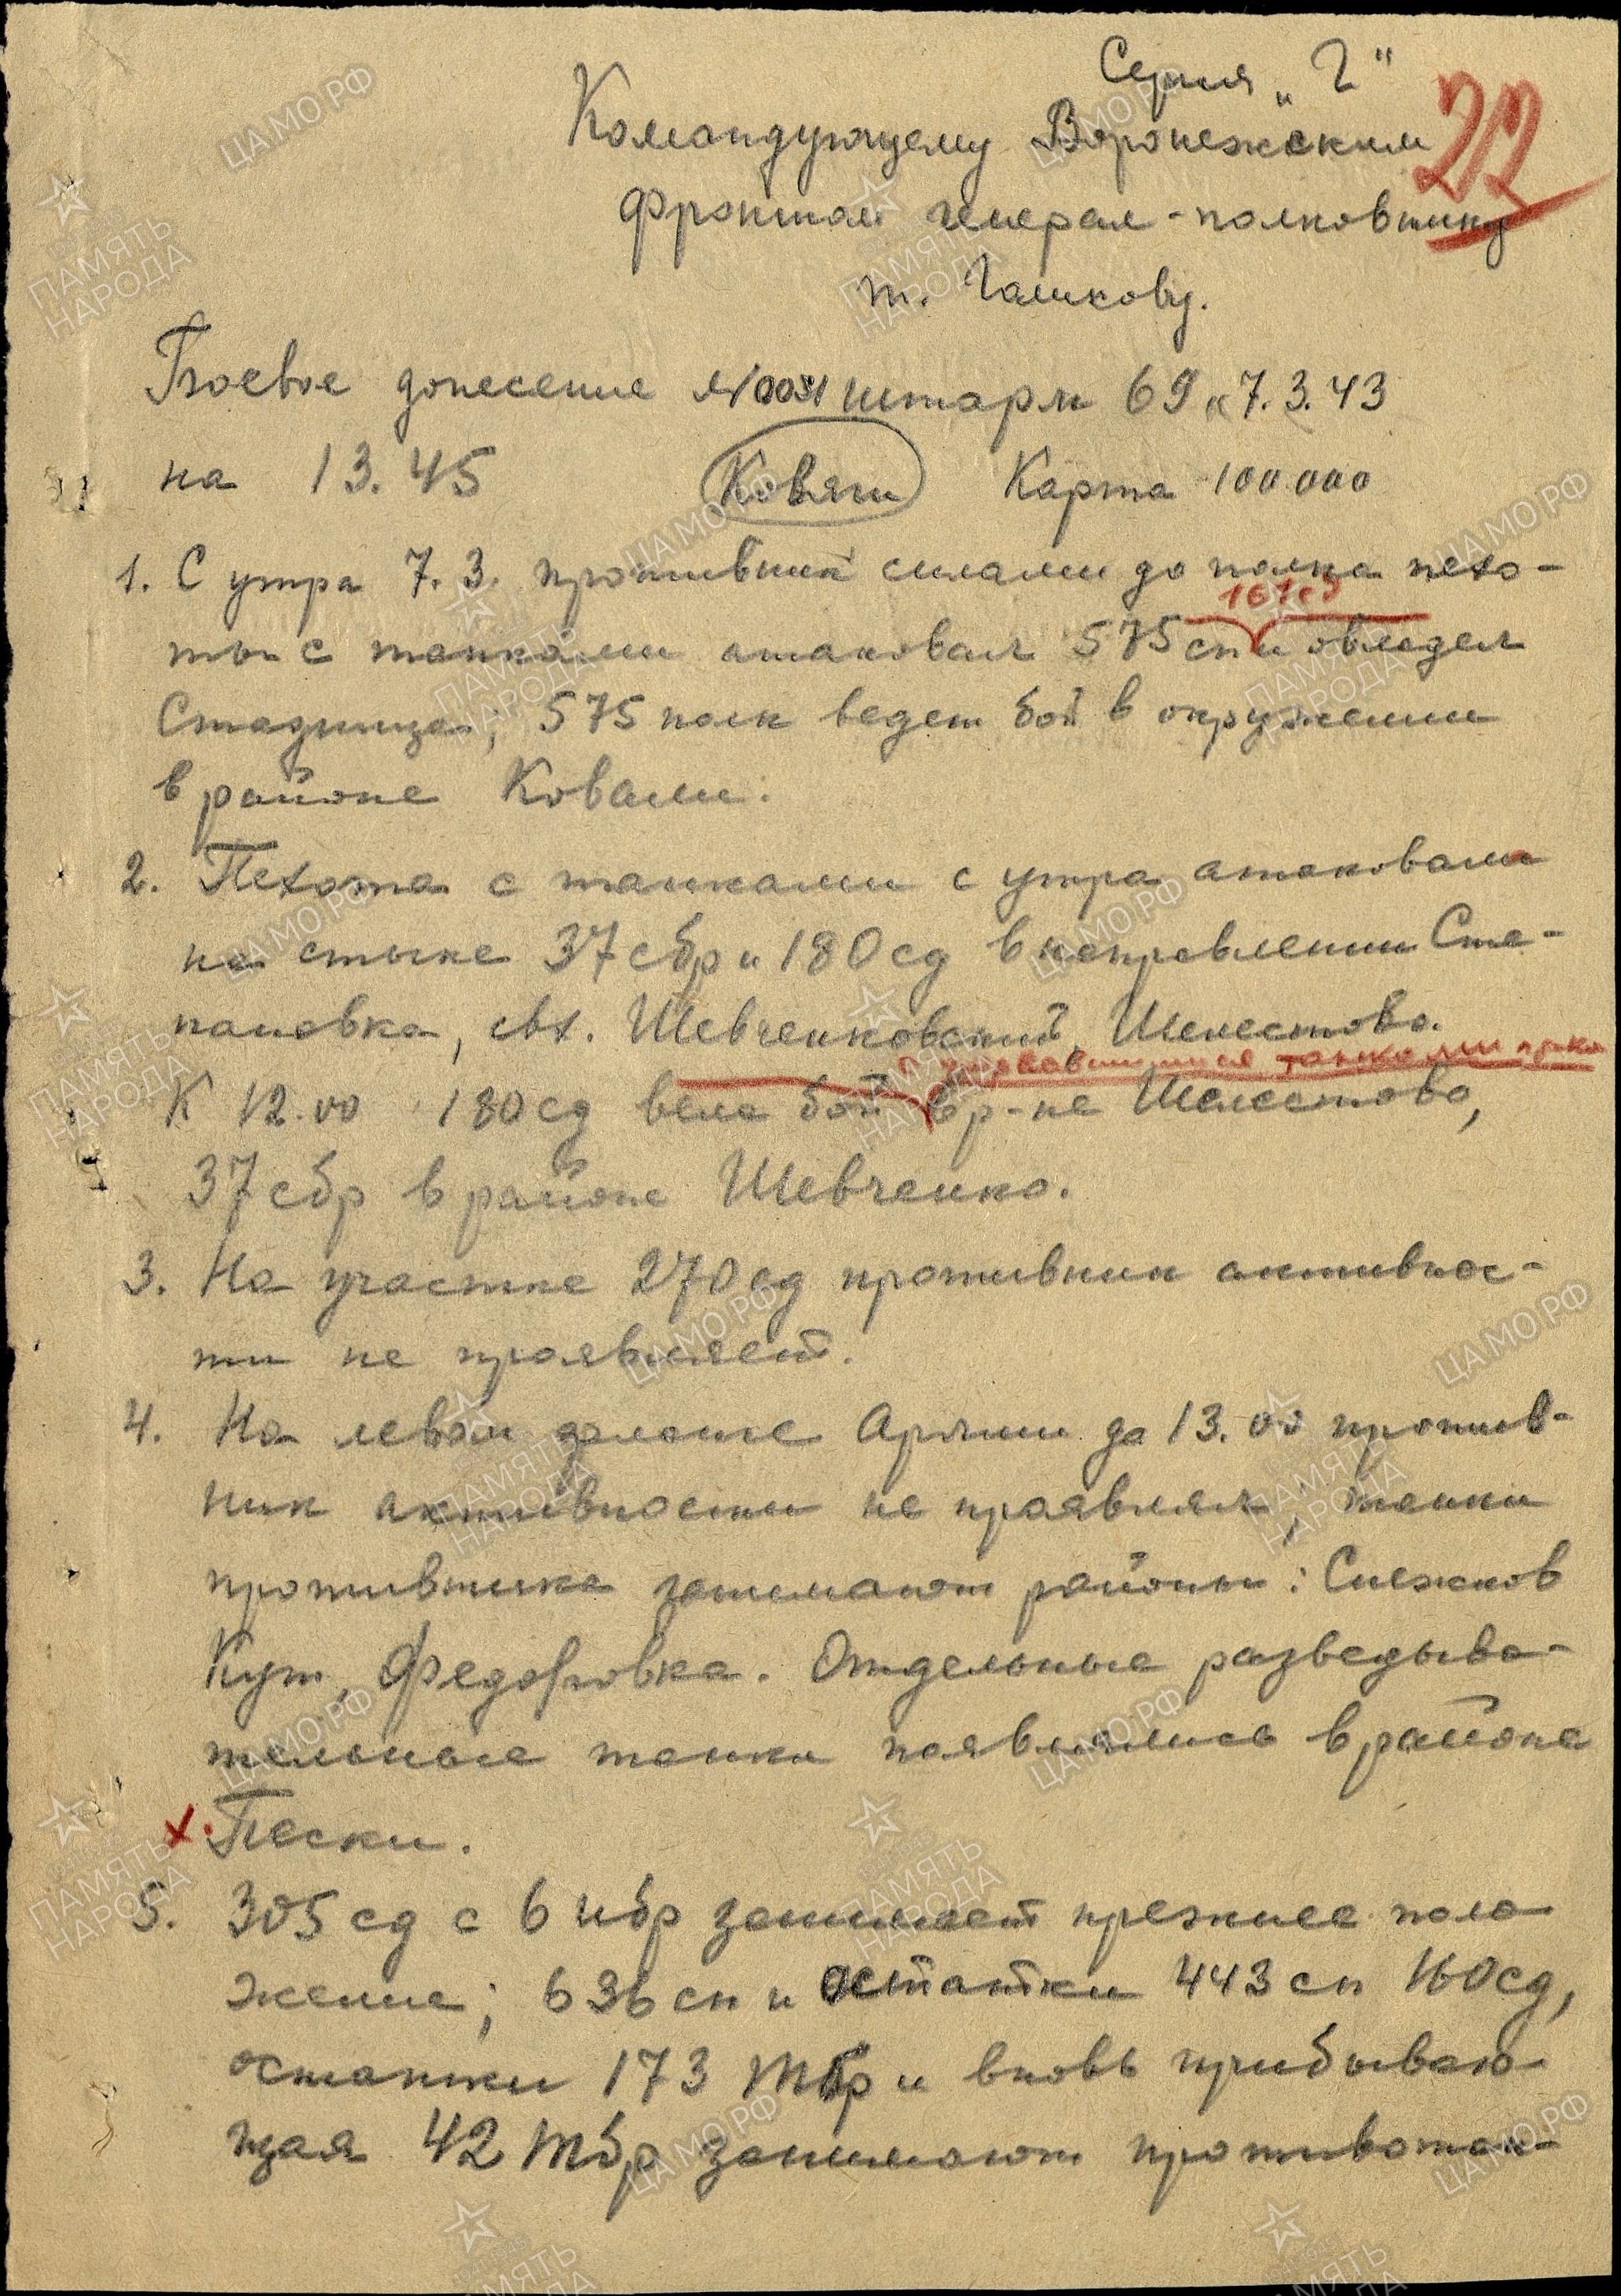 Серия „Г"
22
Командующему Воронежским
фронтом генерал-полковнику
т. Голикову.
Боевое донесение №0031 штарм 69 к 7.3.43
на 13.45 Ковяги Карта 100.000
1. С утра 7.3. противник силами до полка пехо-
161сд
ты с танками атаковал 575 сп и овладел
Стаднища; 575 полк ведет бой в окружении
в районе Ковали.
2. Пехота с танками с утра атаковали
на стыке 37 сбр и 180 сд в направлении Сте-
пановка, свх. Шевченковский, Шелестово.
с прорвавшимися танками пр-ка
К 12.00 180 сд вела бой в р-не Шелестово,
37 сбр в районе Шевченко.
3. На участке 270 сд противник активнос-
ти не проявляет.
4. На левом фланге Армии до 13.00 против-
ник активности не проявлял, танки
противника занимают районы: Снежков
Кут, Федоровка. Отдельные разведыва-
тельные танки появлялись в районе
Пески.
5. 305 сд с 6 ибр занимает прежнее поло
жение; 636 сп и остатки 443 сп 160 сд,
остатки 173 тбр и вновь прибываю-
щая 42 тбр занимают противотан-
ПАМЯТЬ НАРОДА
ЦАМО РФ